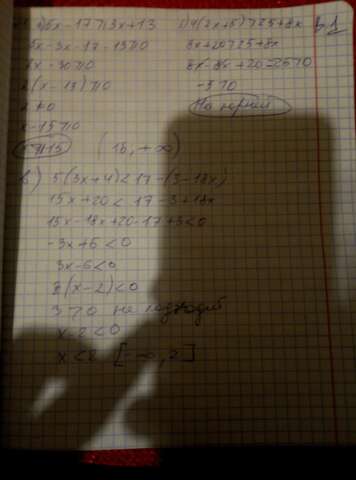 5x - 17 > 3x + 13
4(2x+5) > 25+8x
5x - 3x - 17 - 13 > 0
8x + 20 > 25 + 8x
2x - 30 > 0
8x - 8x + 20 - 25 > 0
2(x - 15) > 0
-5 > 0
x - 15 > 0
x > 15
(15, +∞)
в) 5(3x+4) < 17 - (3 - 18x)
15x + 20 < 17 - 3 + 18x
15x - 18x + 20 - 17 + 3 < 0
-3x + 6 < 0
3x - 6 < 0
3(x - 2) < 0
3 > 0 не
x - 2 < 0
x < 2 [-∞, 2]